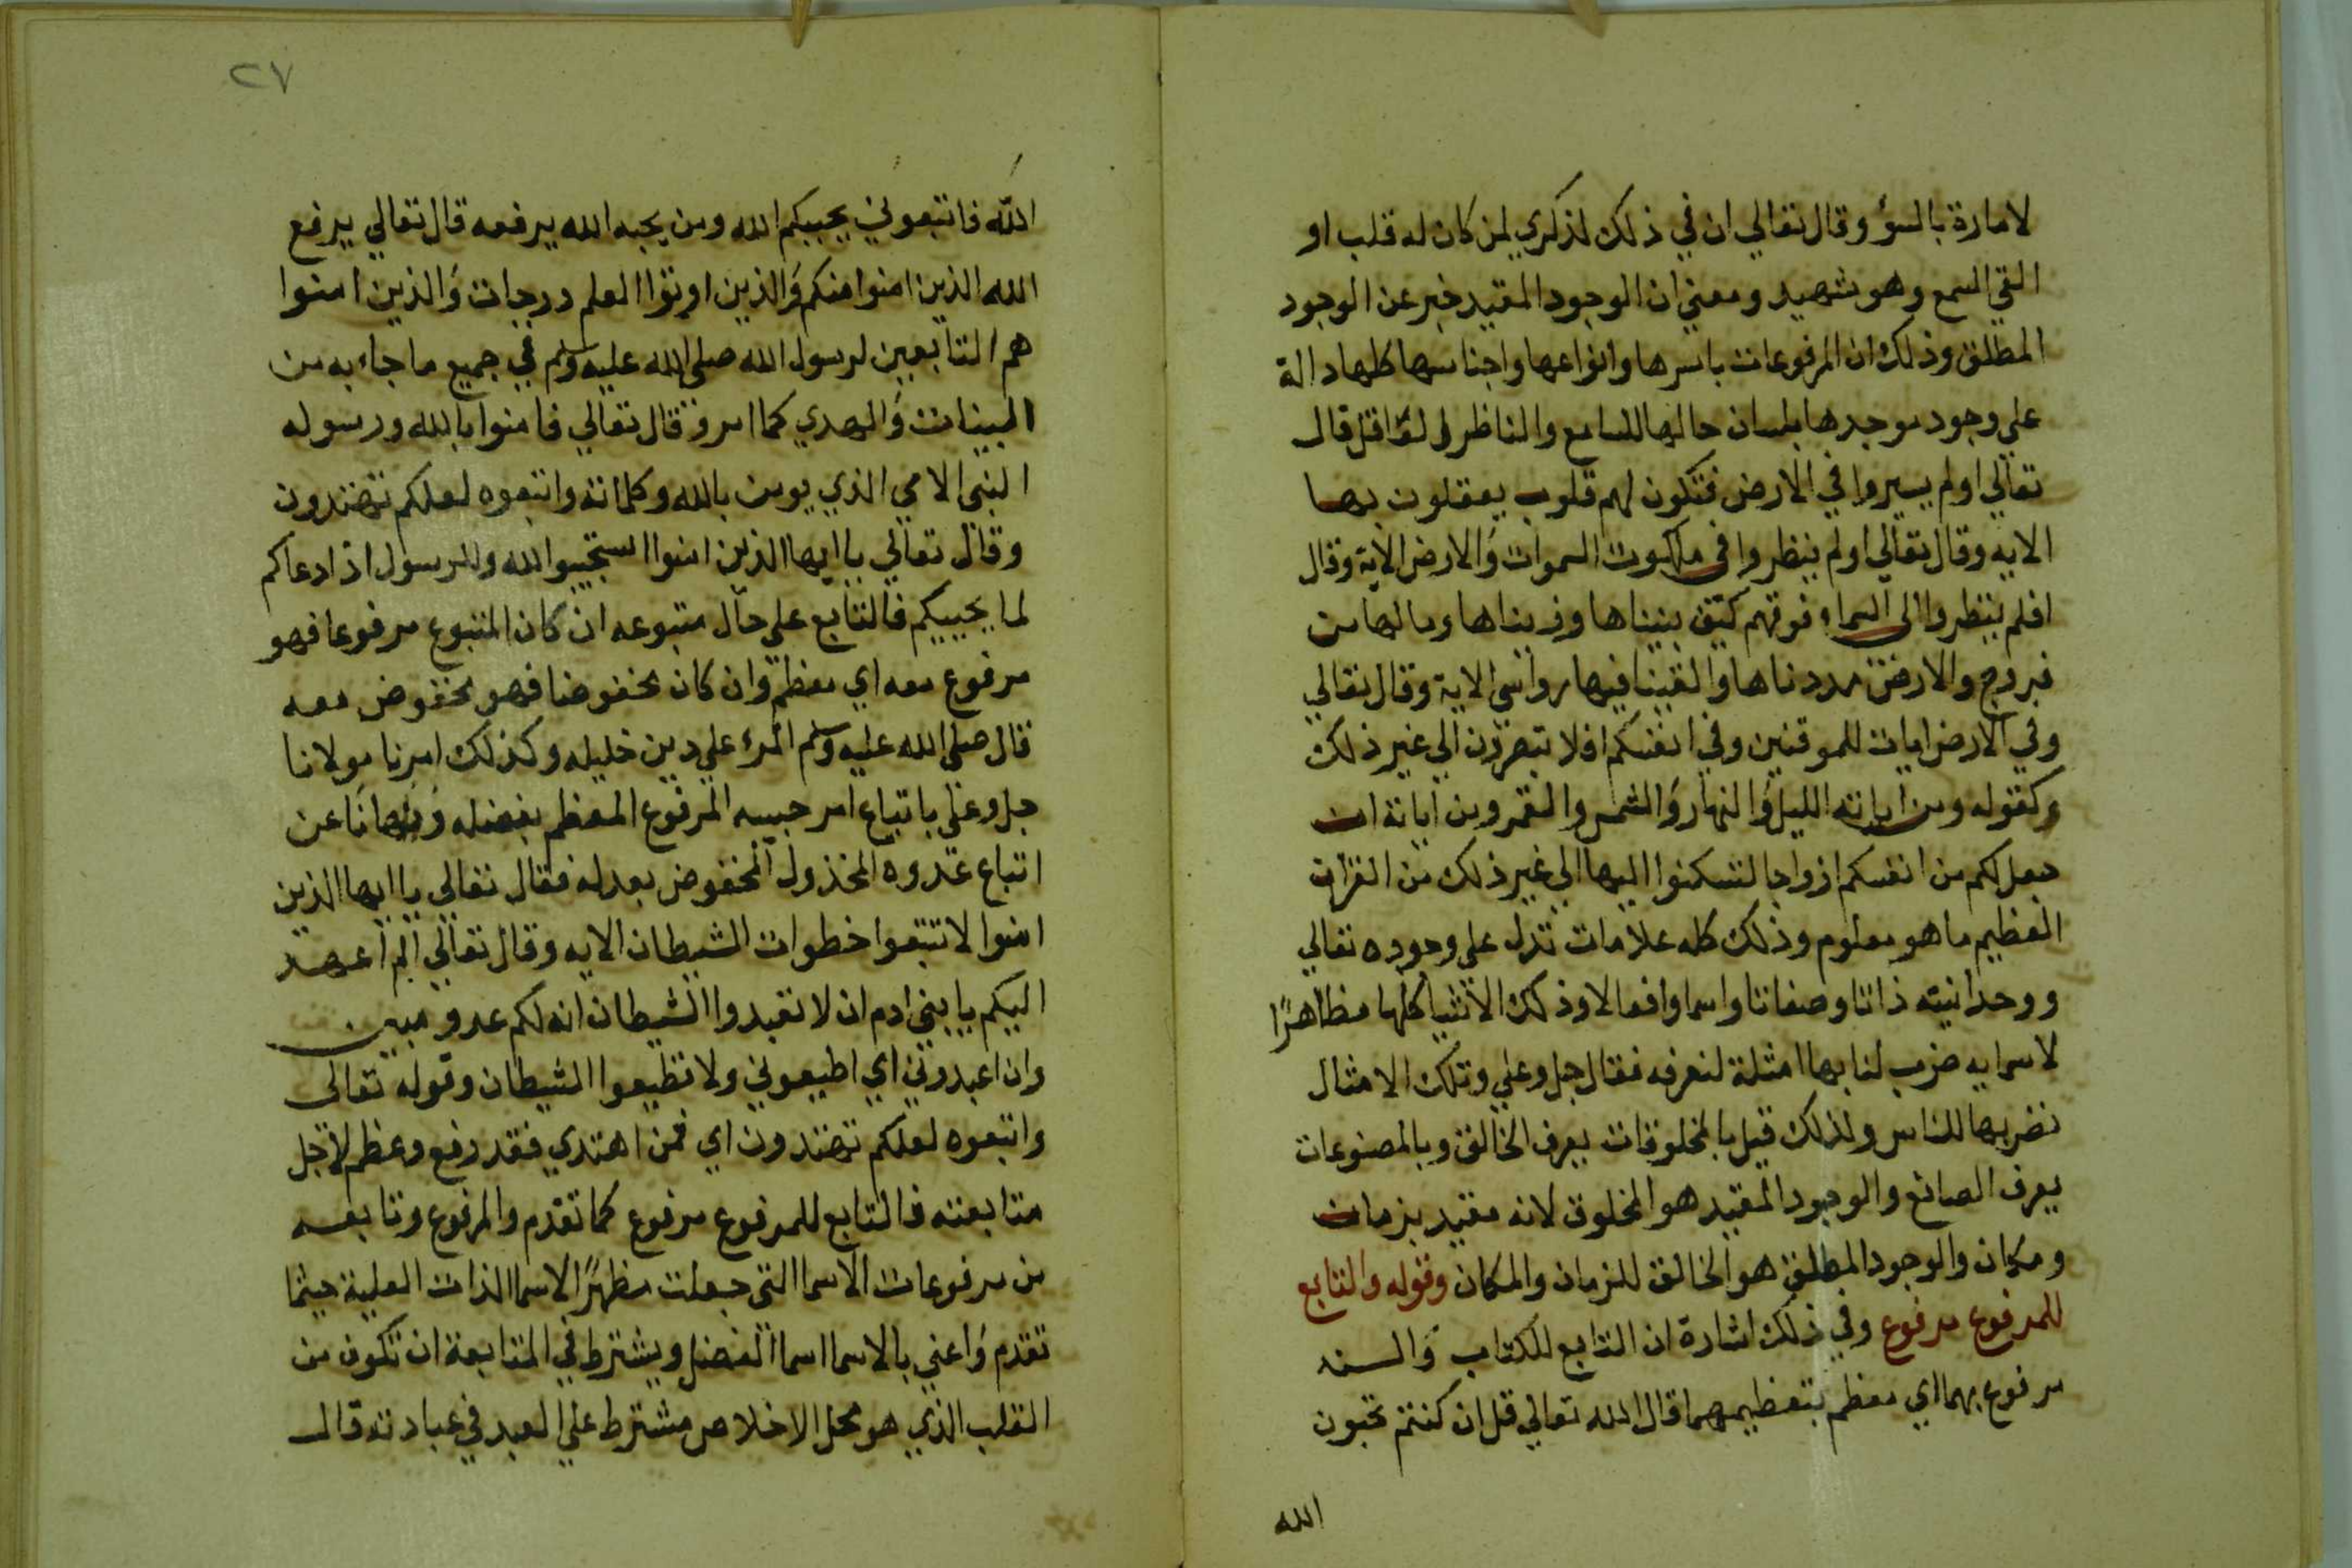 لامارة بالسؤ وقال تعالي ان في ذلك لذكري لمن كان له قلب او
القي السمع وهو شهيد ومعني ان الوجود المقيد خبر عن الوجود
المطلق وذلك ان المرفوعات باسرها وانواعها واجناسها كلها دالة
علي وجود موجدها بلسان حالها للسامع والناظر قال
تعالي اولم يسيروا في الارض فتكون لهم قلوب يعقلون بها
الايه وقال تعالي اولم ينظروا في ملكوت السموات والارض الاية وقال
افلم ينظروا الى السماء فوقهم كيف بنيناها وزيناها وما لها من
فروج والارض مددناها والقينا فيها رواسي الاية وقال تعالي
وفي الارض ايات للموقنين وفي انفسكم افلا تبصرون الي غير ذلك
وكقوله ومن اياته الليل والنهار والشمس والقمر ومن اياته ان
جعل لكم من انفسكم ازواجا لتسكنوا اليها الي غير ذلك من القران
العظيم ما هو معلوم وذلك كله علامات تدل على وجوده تعالي
ووحدانيته ذاتا وصفاتا واسما وافعالا وذلك الاشيا كلها مظاهرًا
لاسمايه ضرب لنا بها امثلة لنعرفه فقال جل وعلي وتلك الامثال
نضربها للناس ولذلك قيل بالمخلوقات يعرف الخالق وبالمصنوعات
يعرف الصانع والوجود المقيد هو المخلوق لانه مقيد بزمان
ومكان والوجود المطلق هو الخالق للزمان والمكان وقوله والتابع
للمرفوع مرفوع وفي ذلك اشارة ان التابع للكتاب والسنه
مرفوع بهما اي معظم بتعظيمهما قال الله تعالي قل ان كنتم تحبون
الله
٢٧
الله فاتبعوني يحببكم الله ومن يحبه الله يرفعه قال تعالي يرفع
الله الذين امنوا منكم والذين اوتوا العلم درجات والذين امنوا
هم التابعين لرسول الله صلى الله عليه وسلم في جميع ما جاء به من
البينات والهدي كما امر وقال تعالي فامنوا بالله ورسوله
النبي الامي الذي يومن بالله وكلماته واتبعوه لعلكم تهتدون
وقال تعالي يا ايها الذين امنوا استجيبوا لله وللرسول اذا دعاكم
لما يحييكم فالتابع علي حال متبوعه ان كان المتبوع مرفوعا فهو
مرفوع معه اي معظم وان كان مخفوضا فهو مخفوض معه
قال صلى الله عليه وسلم المرء علي دين خليله وكذلك امرنا مولانا
جل وعلي باتباع امر حبيبه المرفوع المعظم بفضله ونهانا عن
اتباع عدوه المخذول المخفوض بعدله فقال تعالي يا ايها الذين
امنوا لا تتبعوا خطوات الشيطان الايه وقال تعالي الم اعهد
اليكم يا بني ادم ان لا تعبدوا الشيطان انه لكم عدو مبين
وان اعبدوني اي اطيعوني ولا تطيعوا الشيطان وقوله تعالى
واتبعوه لعلكم تهتدون اي فمن اهتدي فقد رفع وعظم لاجل
متابعته فالتابع للمرفوع مرفوع كما تقدم والمرفوع وتابعه
من مرفوعات الاسما التي جعلت مظهرًا لاسما الذات العلية حيثما
تقدم واعني بالاسما اسما الفضل ويشترط في المتابعة ان تكون من
القلب الذي هو محل الاخلاص مشترط علي العبد في عبادته قال